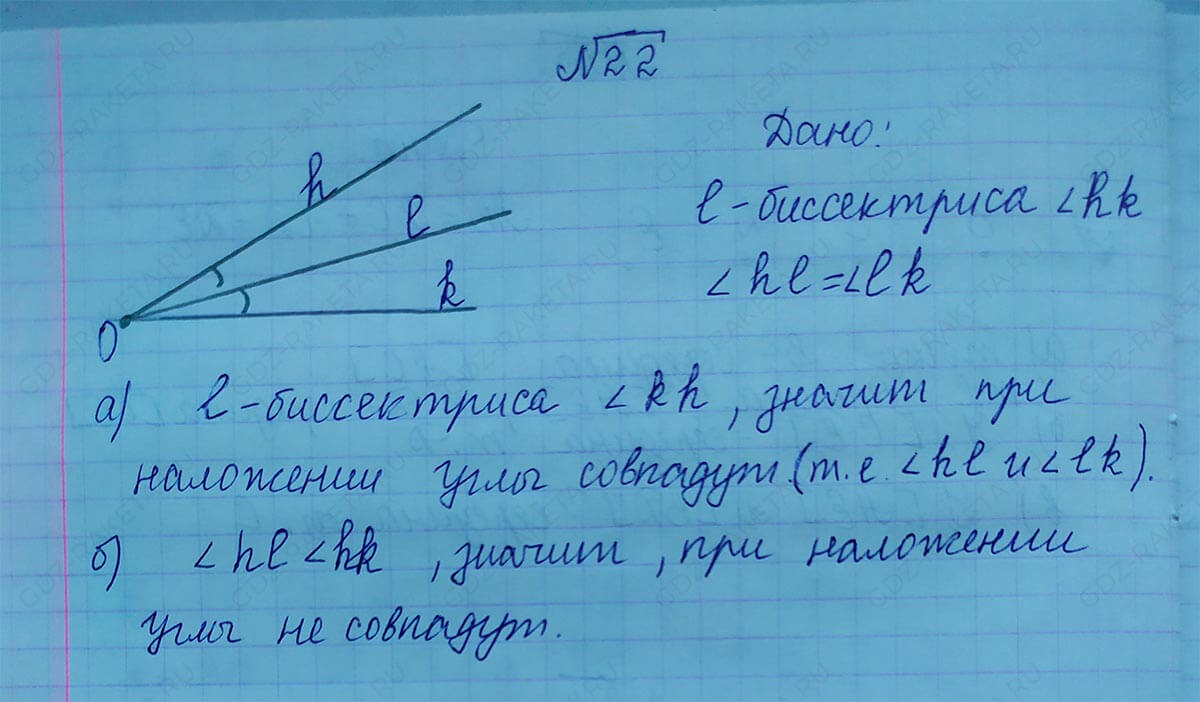 №22
Дано:
h
l
l-биссектриса ∠hk
k
∠hl=∠lk
O
а) l-биссектриса ∠kh, значит при
наложении углы совпадут.(т.е. ∠hl и ∠lk).
б) ∠hl<hk, значит, при наложении
углы не совпадут.
GDZ-RAKETA.RU